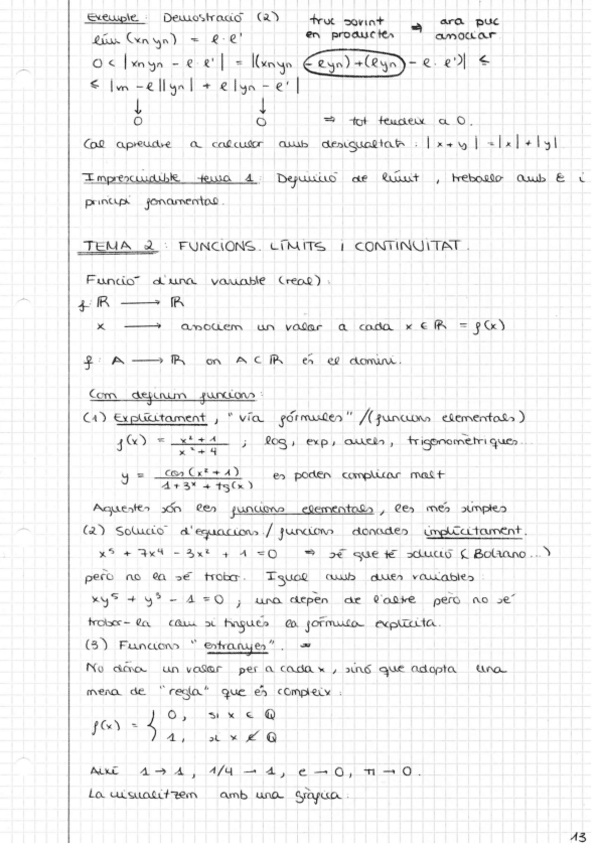 Exemple: Demostració (2) truc sovint en productes ⇒ ara puc associar
lím (xnyn) = l·l'
0 < |xnyn - l·l'| = |(xnyn - lyn) + (lyn - l·l')| ≤
≤ |xn - l||yn| + l|yn - l'|
↓ ↓
0 0 ⇒ tot tendeix a 0.
Cal aprendre a calcular amb desigualtats: |x+y| = |x|+|y|
Imprescindible tema 1: Definició de límit, treballo amb ε i
principi fonamental.
TEMA 2: FUNCIONS. LÍMITS I CONTINUITAT.
Funció d'una variable (real):
f: ℝ → ℝ
x → associem un valor a cada x ∈ ℝ = f(x)
f: A → ℝ on A ⊂ ℝ és el domini.
Com definim funcions:
(1) Explícitament, "via fórmules" / (funcions elementals)
f(x) = (x² + 1)/(x² + 4) ; log, exp, arrels, trigonomètriques...
y = (cos(x² + 1))/(1 + 3ˣ + tg(x)) es poden complicar molt
Aquestes són les funcions elementals, les més simples
(2) Solució d'equacions / funcions donades implícitament.
x⁵ + 7x⁴ - 3x² + 1 = 0 ⇒ sé que té solució (Bolzano...)
però no la sé trobar. Igual amb dues variables:
xy⁵ + y³ - 1 = 0 ; una depèn de l'altre però no sé
trobar-la com si tingués la fórmula explícita.
(3) Funcions "estranyes".
No dóna un valor per a cada x, sinó que adopta una
mena de "regla" que és compleix:
f(x) = { 0, si x ∈ ℚ
1, si x ∉ ℚ
Així 1 → 1, 1/4 → 1, e → 0, π → 0.
La visualitzem amb una gràfica.
13